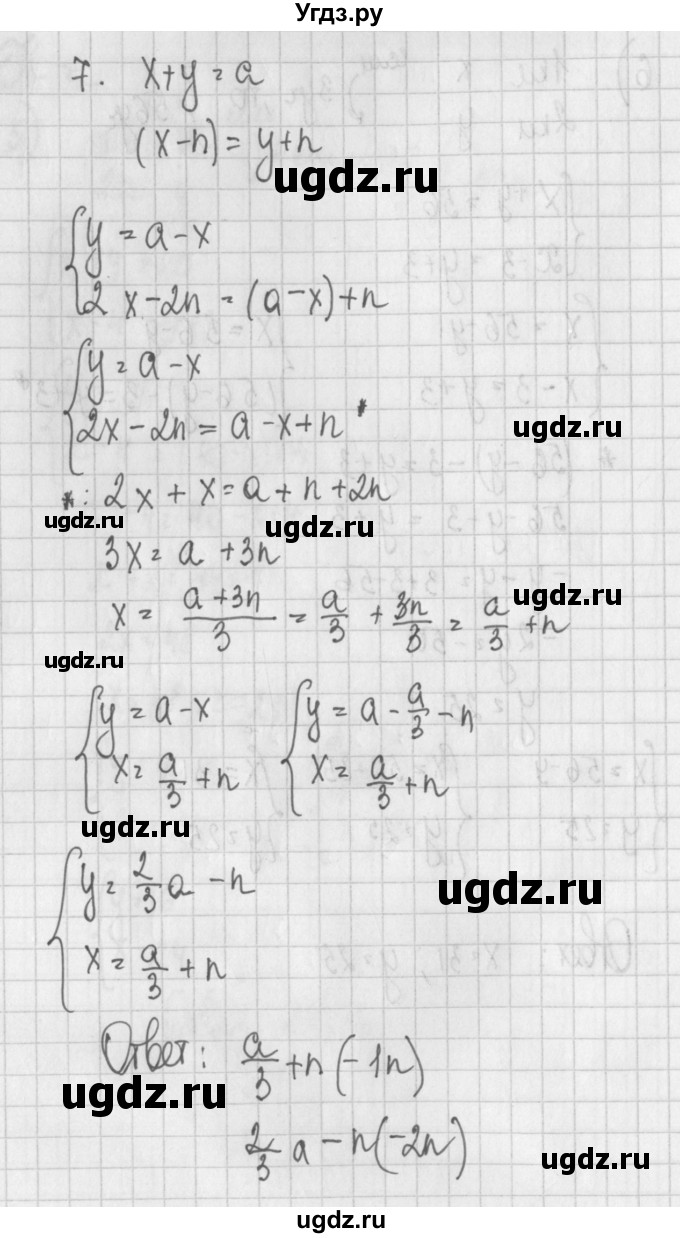 Угдз.ру
7. x+y=a
(x-n)=y+n
ugdz.ru
y=a-x
2x-2n=(a-x)+n
y=a-x
2x-2n=a-x+n *
ugdz.ru
*: 2x+x=a+n+2n
ugdz.ru
ugdz.ru
3x=a+3n
ugdz.ru
x= (a+3n)/3 = a/3 + 3n/3 = a/3 +n
ugdz.ru
y=a-x   y=a-a/3-n
x=a/3+n   x=a/3+n
ugdz.ru
y=2/3a-n
ugdz.ru
x=a/3+n
Ответ: a/3+n(-1n)
ugdz.ru
2/3a-n(-2n)
ugdz.ru
ugdz.ru